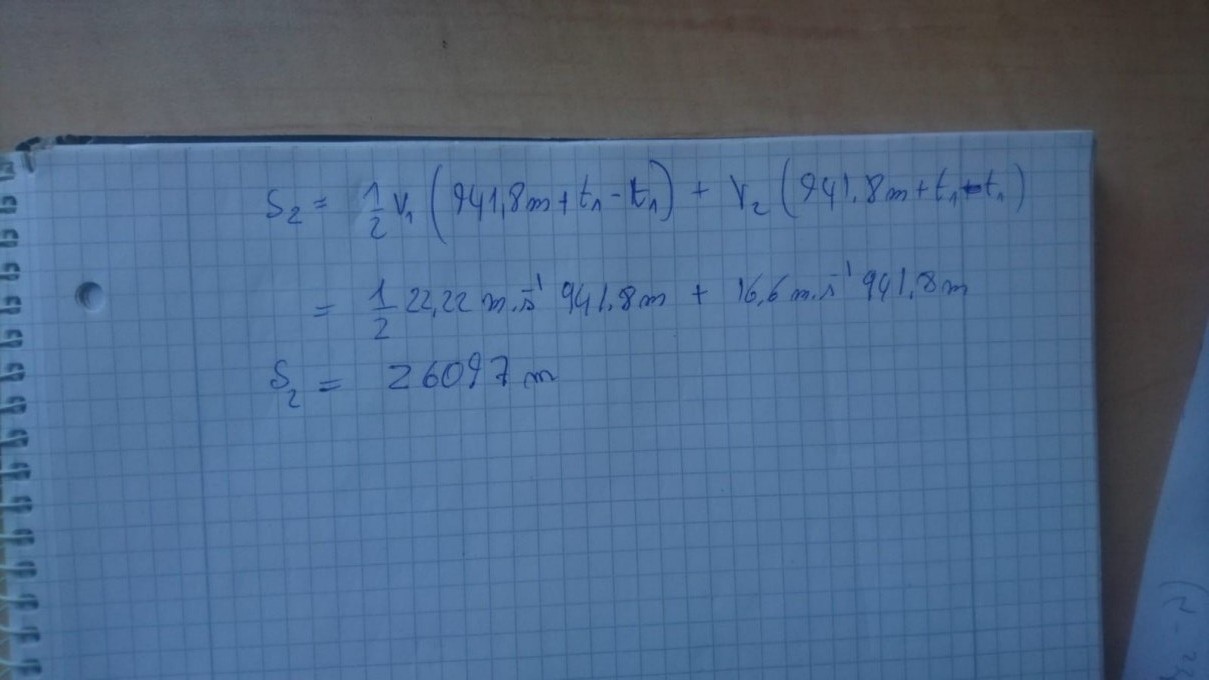 S₂ = 1/2 v₁ (941,8m + t₁ - t₁) + V₂ (941,8m + t₁ - t₁)
= 1/2 22,22 m.s⁻¹ 941,8m + 16,6 m.s⁻¹ 941,8m
S₂ = 26097 m